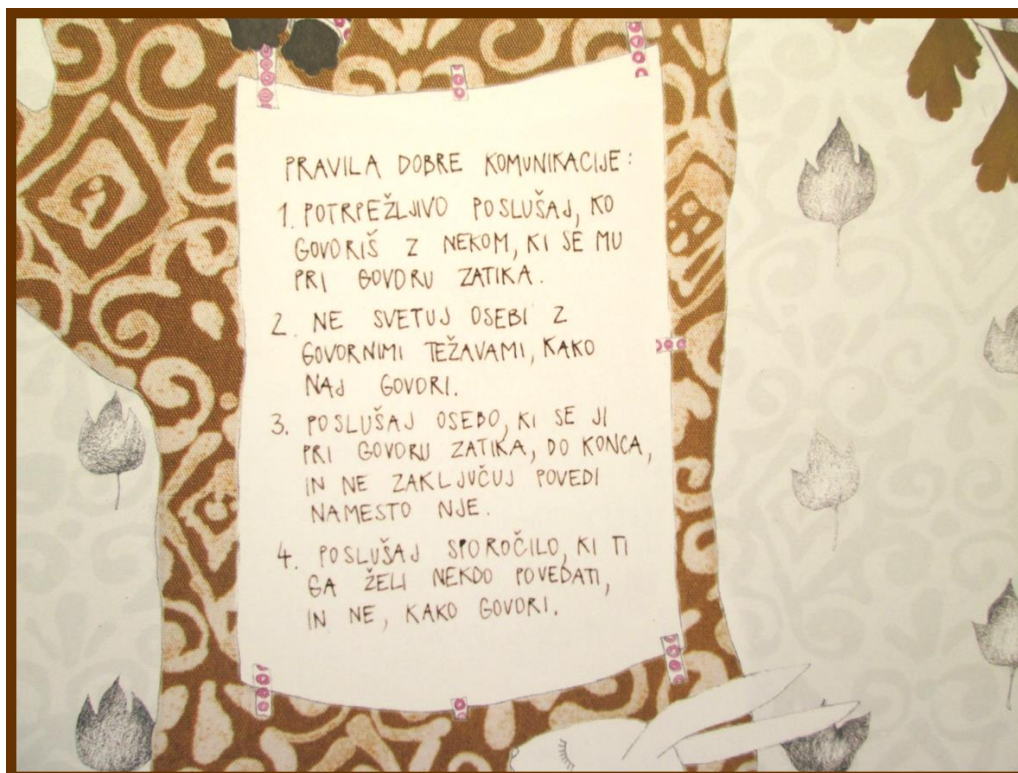 PRAVILA DOBRE KOMUNIKACIJE:
1. POTRPEŽLJIVO POSLUŠAJ, KO
GOVORIŠ Z NEKOM, KI SE MU
PRI GOVORU ZATIKA.
2. NE SVETUJ OSEBI Z
GOVORNIMI TEŽAVAMI, KAKO
NAJ GOVORI.
3. POSLUŠAJ OSEBO, KI SE JI
PRI GOVORU ZATIKA, DO KONCA,
IN NE ZAKLJUČUJ POVEDI
NAMESTO NJE.
4. POSLUŠAJ SPOROČILO, KI TI
GA ŽELI NEKDO POVEDATI,
IN NE, KAKO GOVORI.